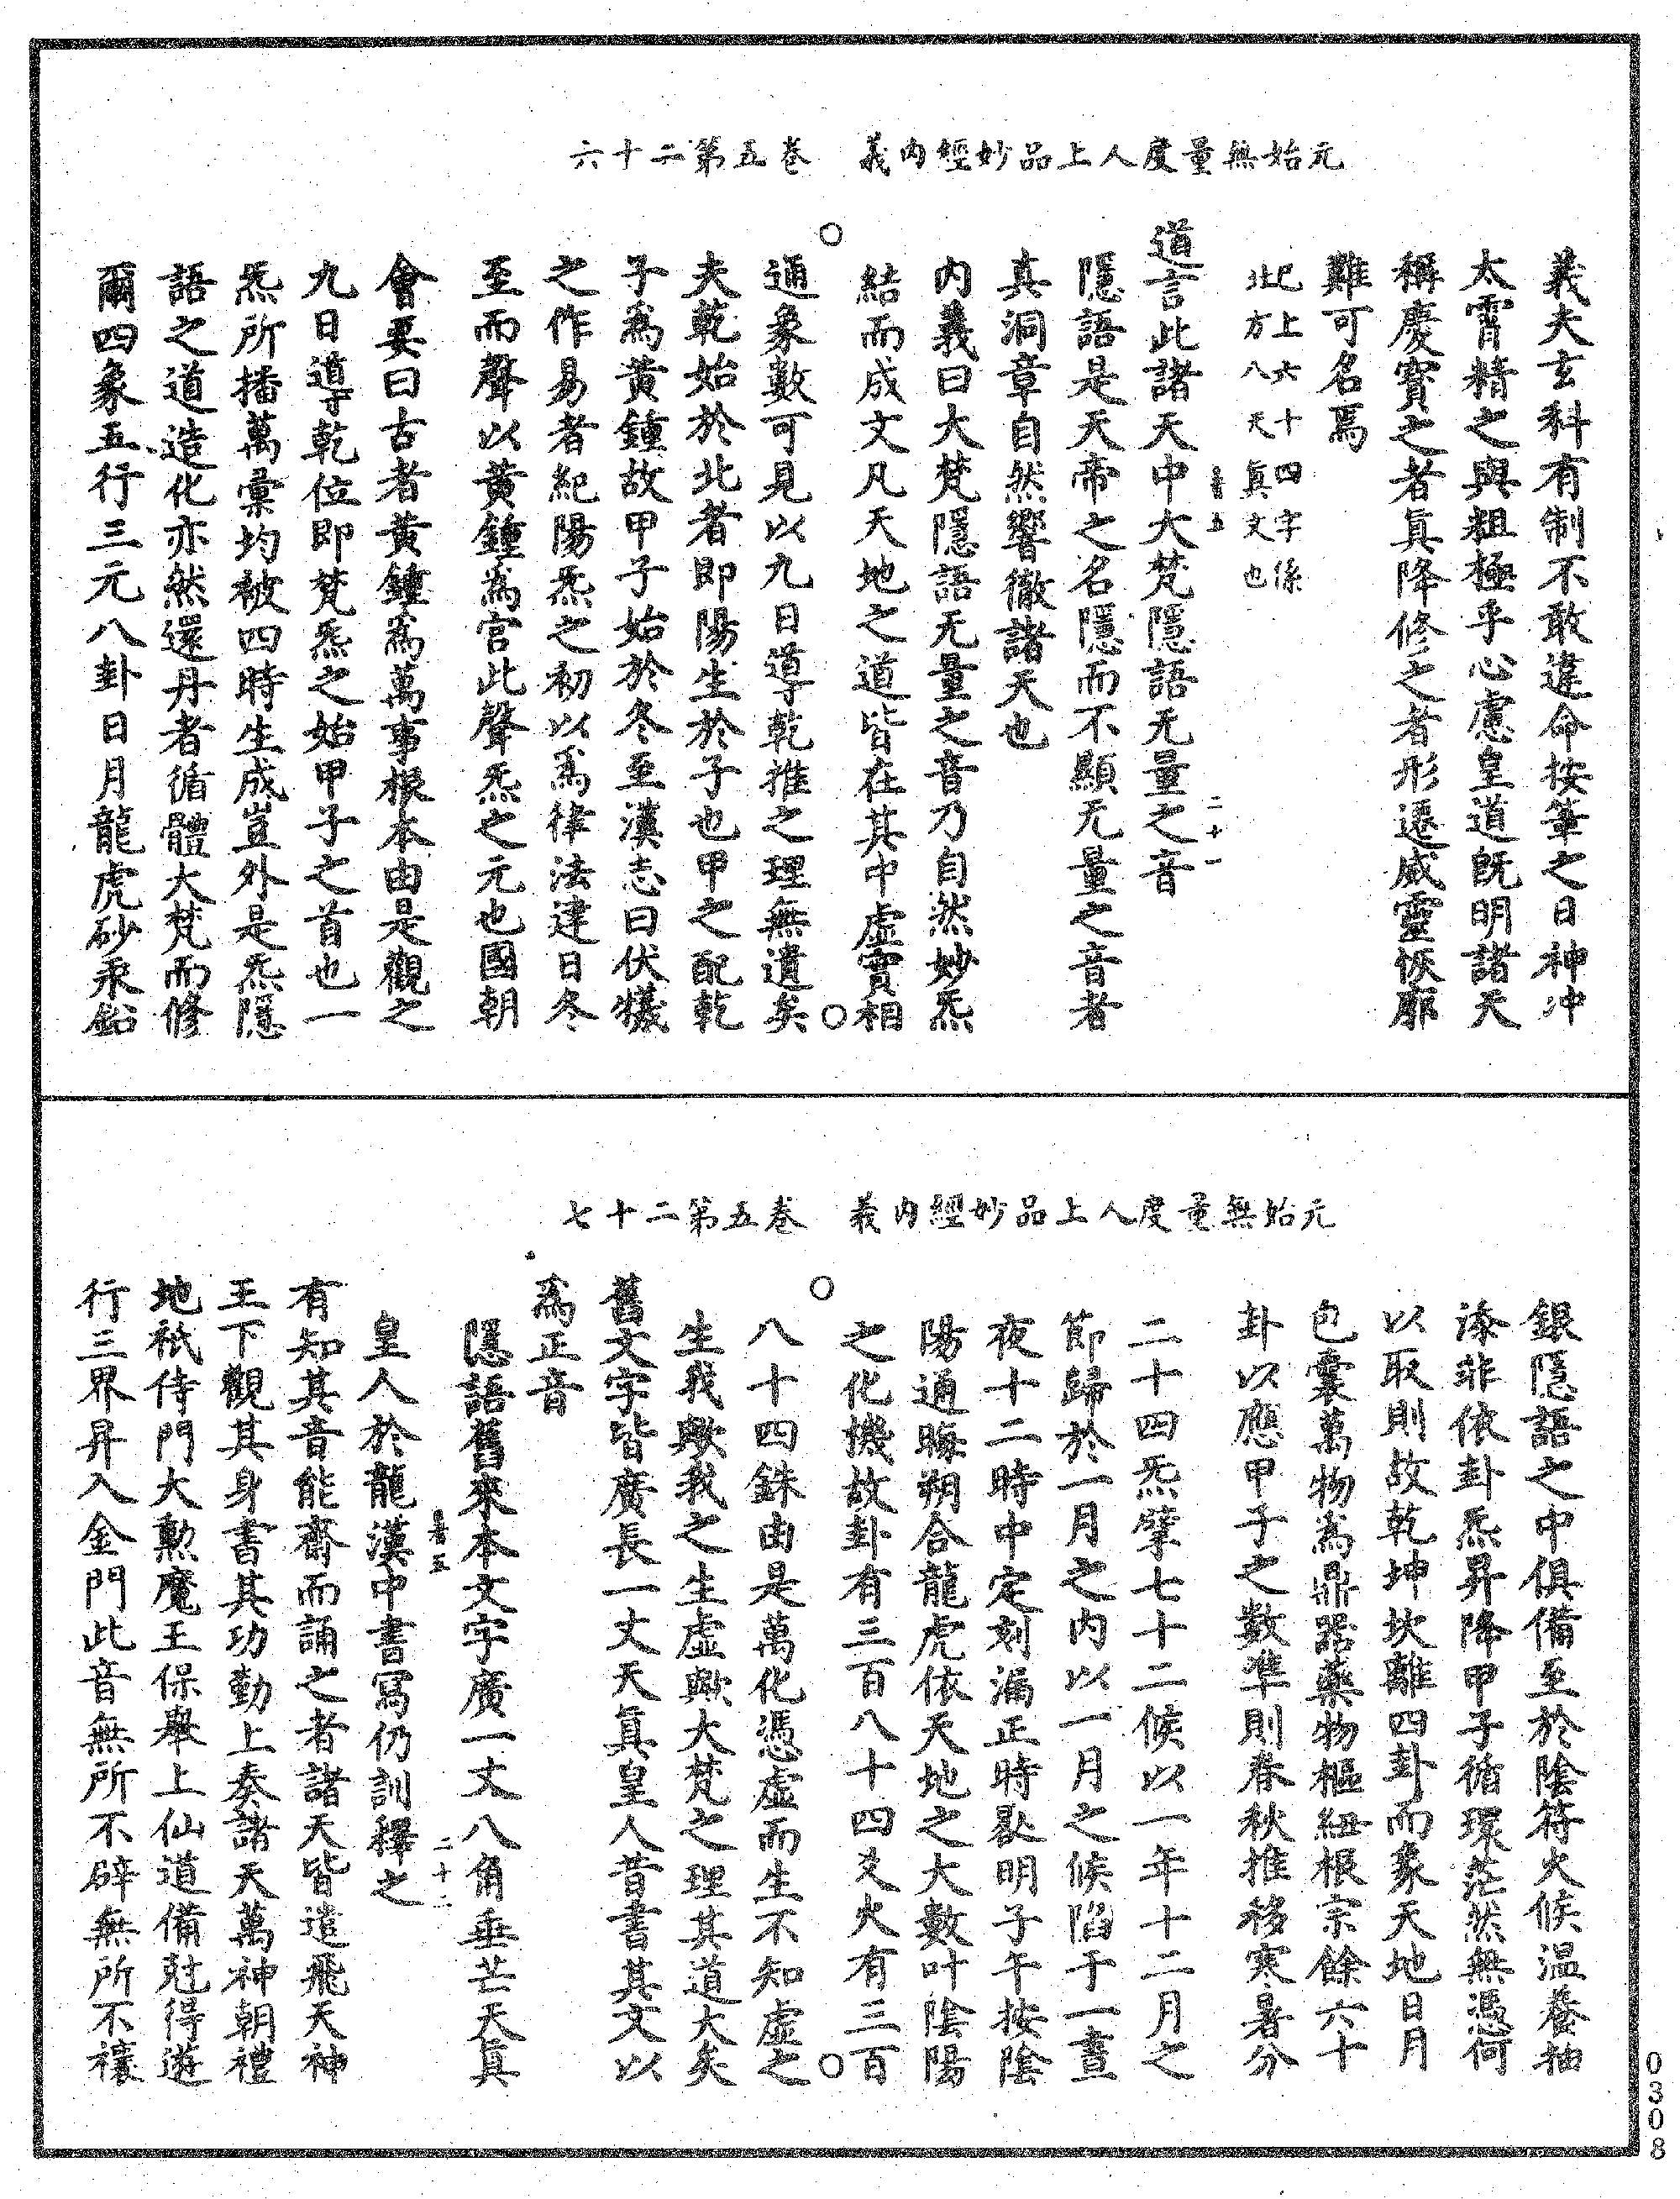 元始無量度人上品妙經內義　卷五第二十六
義夫玄科有制不敢違命按筆之日神冲
太霄精之與粗極乎心慮皇道既明諸天
稱慶寶之者真降修之者形遷威靈恢廓
難可名焉
已上六十四字係
北方八天真文也
二十一
道言此諸天中大梵隱語无量之音
隱語是天帝之名隱而不顯无量之音者
真洞章自然響徹諸天也
内義曰大梵隱語无量之音乃自然妙炁
結而成文凡天地之道皆在其中虛實相
○　○
通象數可見以九日導乾推之理無遺矣
夫乾始於北者即陽生於子也甲之配乾
子為黃鍾故甲子始於冬至漢志曰伏犧
之作易者紀陽炁之初以為律法建日冬
至而聲以黃鍾為宮此聲炁之元也國朝
會要曰古者黃鍾為萬事根本由是觀之
九日導乾位即梵炁之始甲子之首也一
炁所播萬彙均被四時生成豈外是炁隱
語之道造化亦然還丹者循體大梵而修
爾四象五行三元八卦日月龍虎砂汞鉛
元始無量度人上品妙經內義　卷五第二十七
銀隱語之中俱備至於陰符火候温養抽
添非依卦炁昇降甲子循環茫然無憑何
以取則故乾坤坎離四卦而象天地日月
包囊萬物為鼎器藥物樞紐根宗餘六十
卦以應甲子之數準則春秋推移寒暑分
二十四炁擘七十二候以一年十二月之
節歸於一月之内以一月之候陷于一晝
夜十二時中定刻漏正時㫷明子午按陰
陽通晦朔合龍虎依天地之大數叶陰陽
之化機故卦有三百八十四爻火有三百
○　○
八十四銖由是萬化憑虛而生不知虛之
生我歟我之生虛歟大梵之理其道大矣
舊文字皆廣長一丈天真皇人昔書其文以
為正音
隱語舊來本文字廣一丈八角垂芒天真
二十二
皇人於龍漢中書寫仍訓釋之
有知其音能齋而誦之者諸天皆遣飛天神
王下觀其身書其功勤上奏諸天萬神朝禮
地祇侍門大勲魔王保舉上仙道備尅得遊
行三界昇入金門此音無所不辟無所不禳
0308